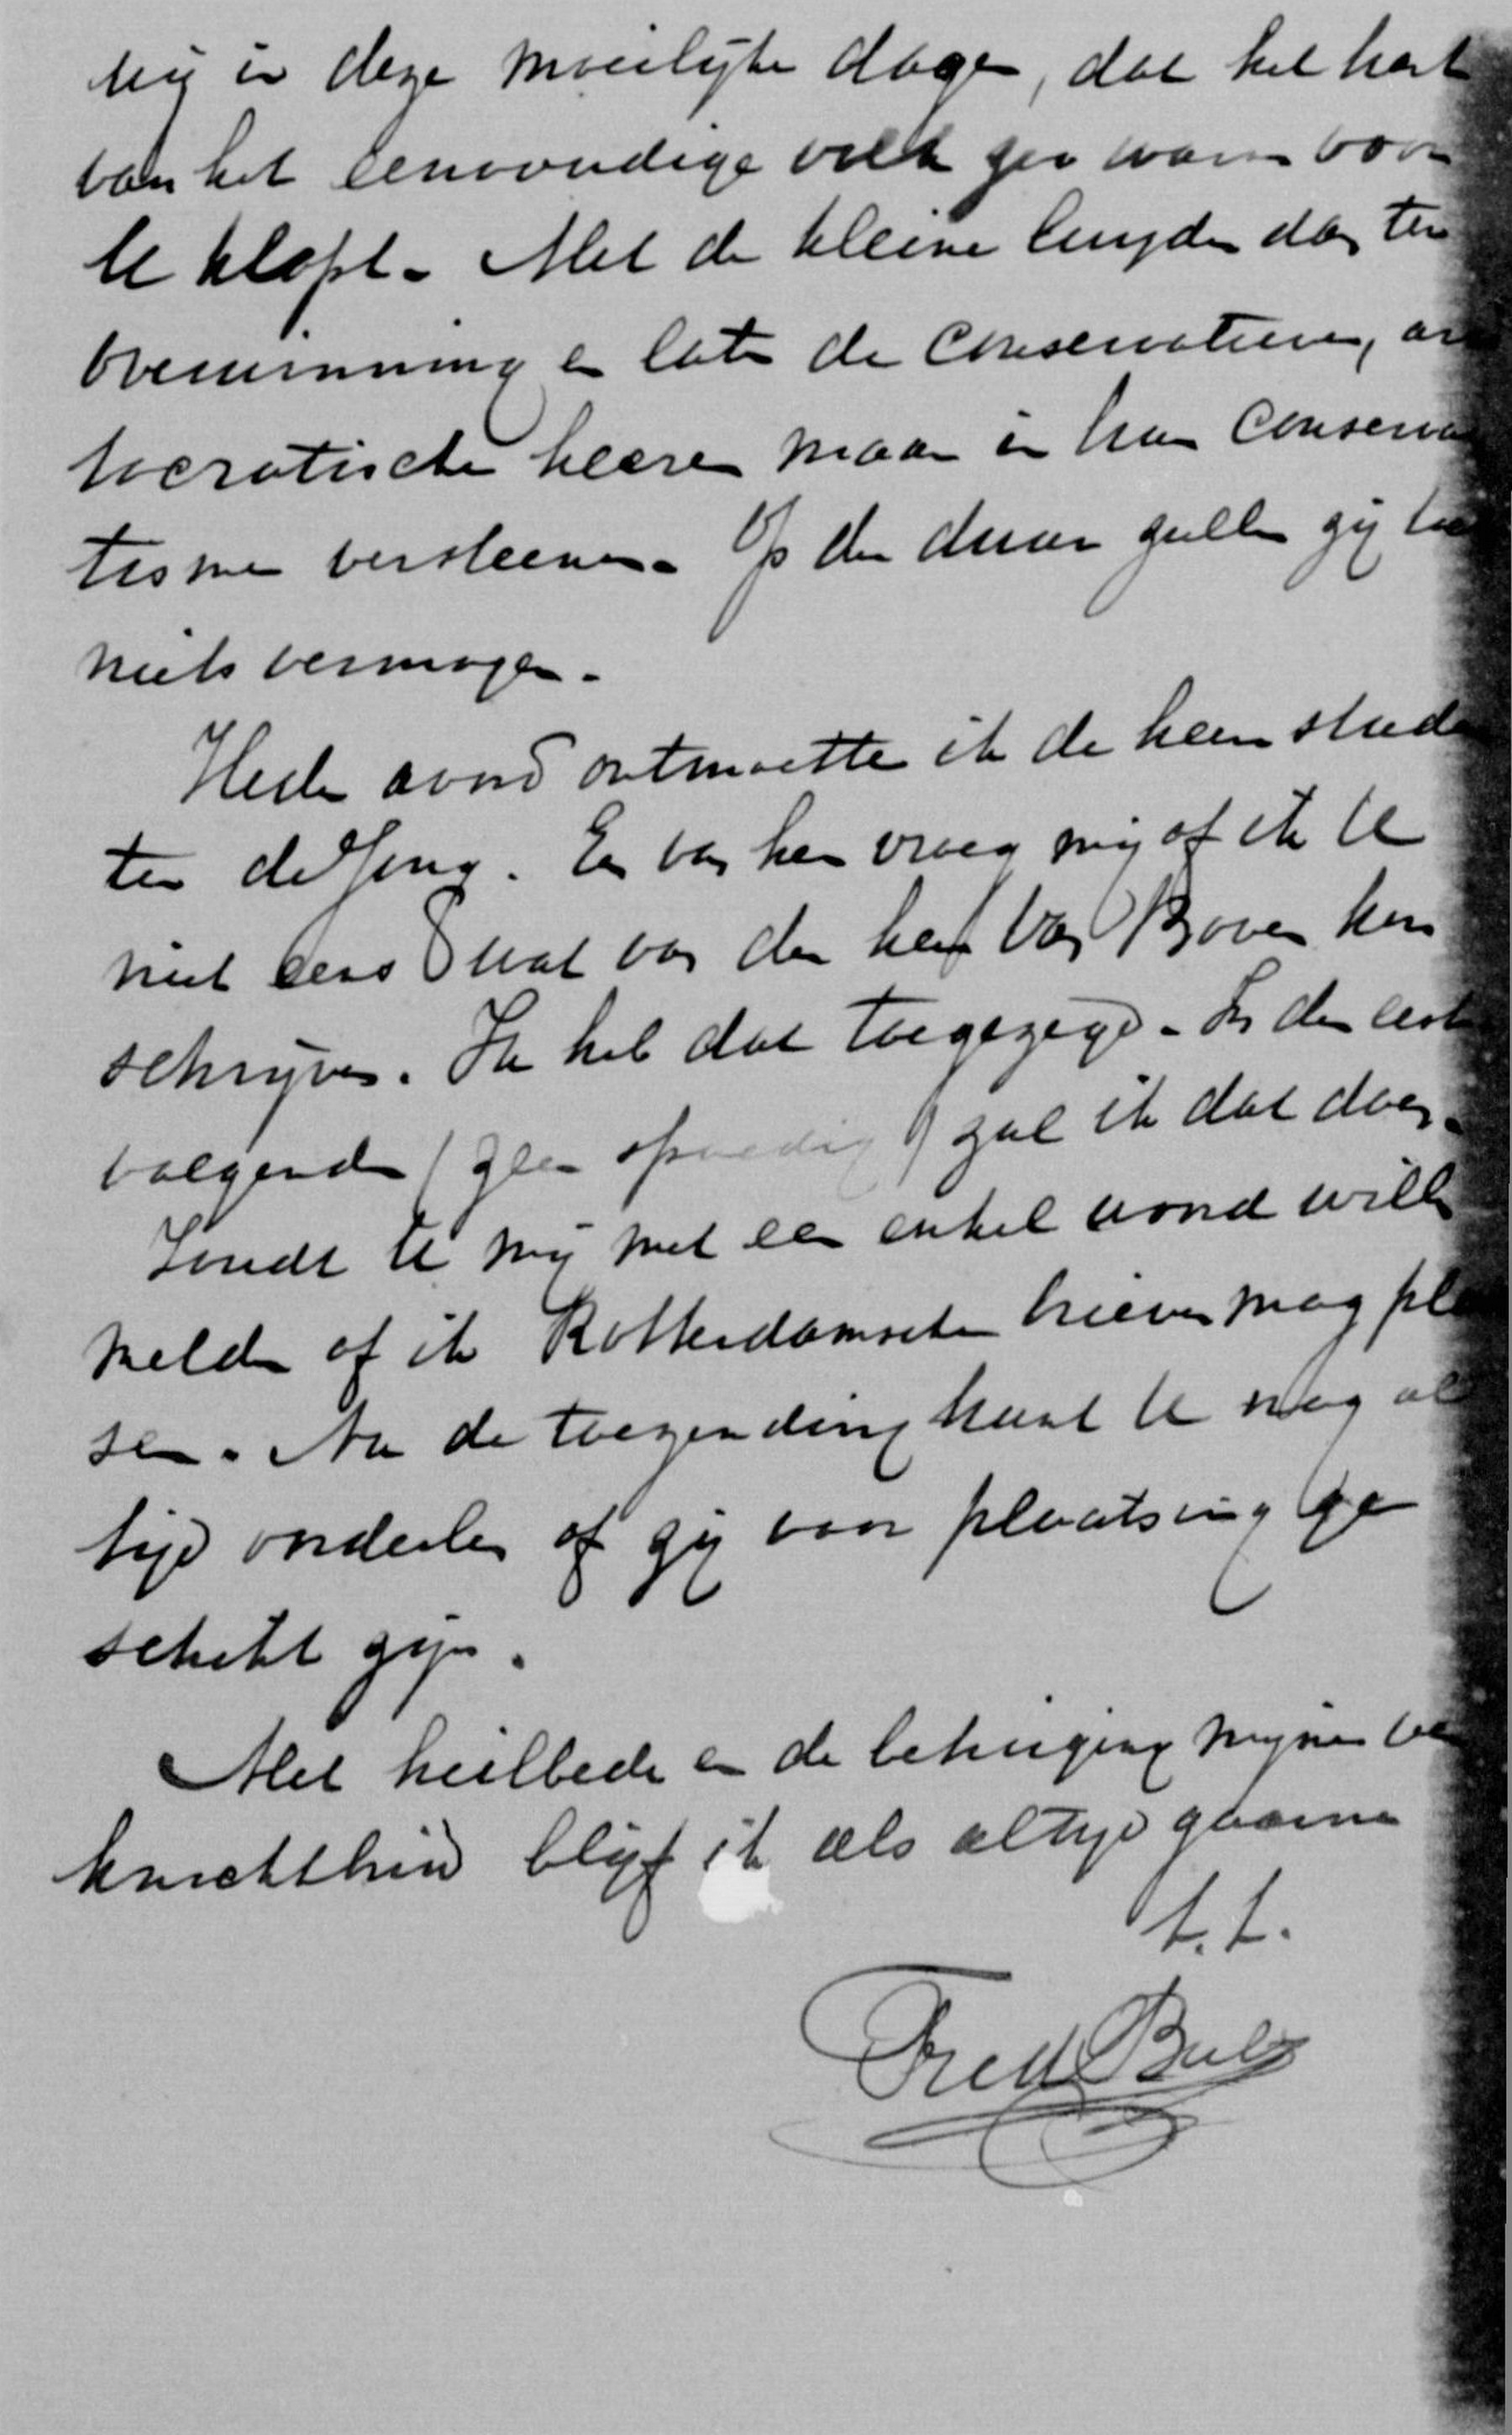 mij in deze moeilijke dagen, dat het hart
van het eenvoudige volk zoo warm voor
U klopt. Met de kleine luyden dan ter
overwinning en late de conservatieve, ari
tocratische heeren maar in hun conserva
tisme versteenen. Op den duur zullen zij toc
niets vermogen.
Heden avond ontmoette ik de heer studen
ten de Jong. Een van hen vroeg mij of ik U
niet eens wat van den heer van Boven kon
schrijven. Ik heb dat toegezegd. In den eerst
volgende (geen spoedig) zal ik dat doen.
Zoudt U mij met een enkel woord willen
melden of ik Rotterdamsche brieven mag pla
sen. Na de toezending kunt U nog al
tijd oordeelen of zij voor plaatsing ge
schikt zijn.
Met heilbede en de betuiging mijner
blijf ik als altijd gaarne
t.t.
Fred Buls